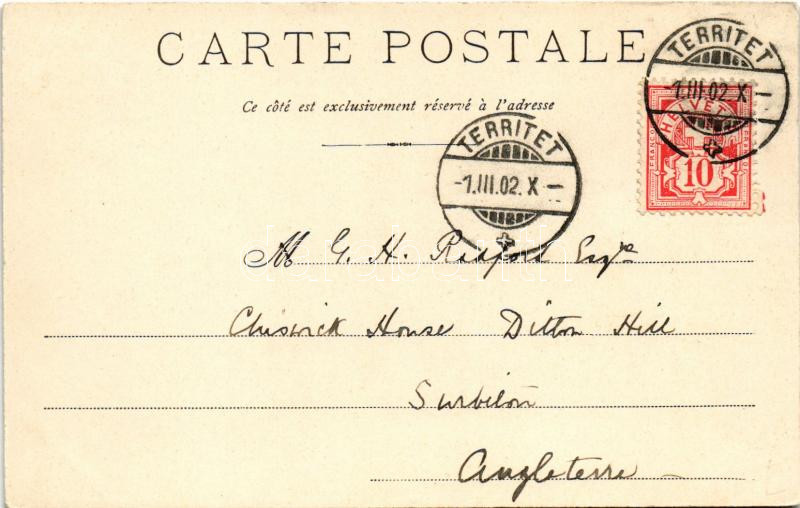 CARTE POSTALE
TERRITET
1.III.02.X-
Ce côté est exclusivement réservé à l'adresse
HELVETIA
FRANCO FRANCO
10
TERRITET
-1.III.02.X-
M G. H. Esqre
Chiswick House Ditton Hill
Surbiton
Angleterre